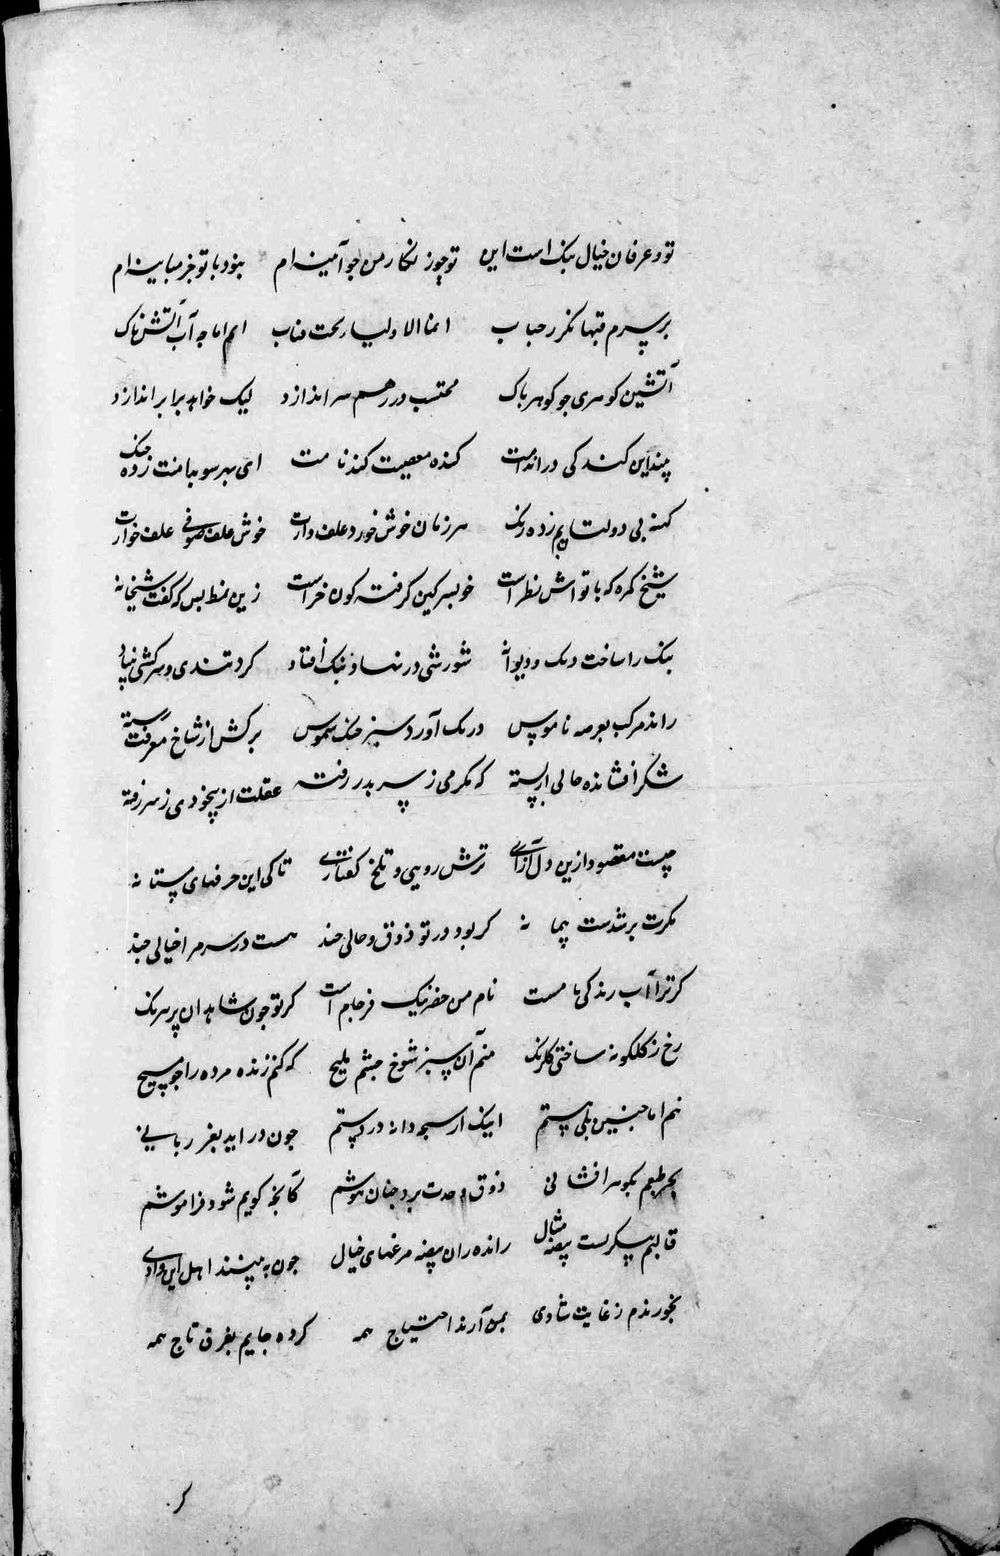 تو و عرفان خیال بنک است این توچوز نکار من چو آمینه ام بنود با تو جز مباینه ام
بر سرم قبها نکر ر حباب امنا الاولیا ر تحت قباب ام اما به آب آتش ناک
آتشین کوهری جو کوهر پاک محتسب در رهم سر اندازد لیک خواهد برابر اندازد
چند این کند کی در اندامت کنده معصیت کند نامت ای بهر سو بدامنت زده چنک
کهنه بی دولتایم زده رنک هر زمان خوش خورد علف وارت خوش علف صوفی علف خوارت
شیخ کمره که با تو اش نظر است خوبسر کین کرفته کون خر است زین نمط بس که کفت شیخانه
بنک را ساخت دنک و دیوانه شورشی در نهاد بنک افتاد کرد تندی و سرکشی بنیاد
راند مرکب بعرصه ناموس در تک آورد سبز خنک شموس بر کش از شاخ معرفت رسته
شکر افشانده حالی از پسته که مکر می ز سر بدر رفته عقلت از بیخودی ز سر رفته
چیست مقصود ازین دل آزاری ترش رویی و تلخ کفتاری تا کی این حرفهای مستانه
مکرت بر شدست پیمانه کر بود در تو ذوق و حالی چند هست در سر مرا خیالی چند
کر ترا آب زندکی نامست نام من خضر نیک فرجام است کر تو چون شاهدان پر نیرنک
رخ ز کلکونه ساختی کلرنک منم آن سبز شوخ چشم ملیح که کنم زنده مرده را چو مسیح
نیم اما چنین بلی هستم اینک ار سبحه دانه در دستم چون دراید بغز ربایی
بحر طبعم بکوهر افشانی ذوق وحدت برد چنان هوشم کانچه کویم شود فراموشم
قالبم پیکرست بیضه مثال رانده زان بیضه مرغهای خیال چون به بینند اهل این وادی
بخورندم ز غایت شادی بمن آرند احتیاج همه کرده جایم بفرق تاج همه